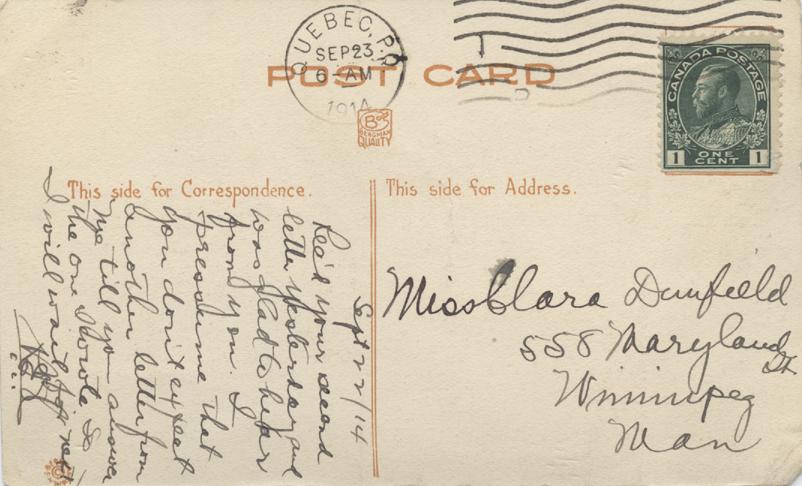 QUEBEC, P.Q
SEP 23
6-AM
1914
POST CARD
CANADA POSTAGE
1 ONE CENT 1
B
BERGMAN
QUALITY
This side for Correspondence.
This side for Address.
Sept 22/14
Rec'd your second
letter yesterday and
was glad to hear
from you. I
pressume that
you don't expect
another letter from
me till you answer
the one I wrote so
I will wait for next
Miss Clara Dunfield
558 Maryland St
Winnipeg
Man